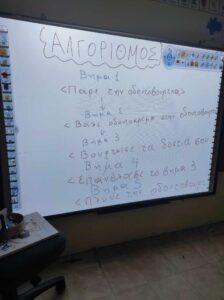 ΑΛΓΟΡΙΘΜΟΣ
Βήμα 1
<Πάρε την οδοντόβουρτσα>
Βήμα 2
<Βάλε οδοντόκρεμα στην οδοντόβουρτσα
Βήμα 3
<Βούρτσισε τα δόντια σου
Βήμα 4
<Επανέλαβε το βήμα 3
Βήμα 5
<Πλύνε την οδοντόβουρ